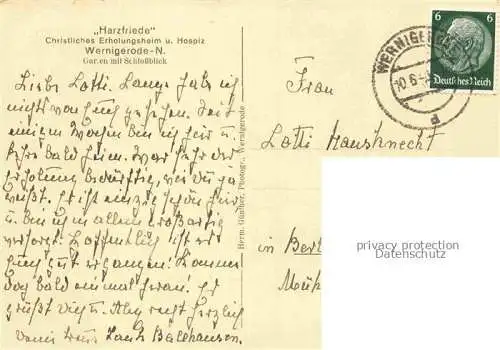 „Harzfriede"
Christliches Erholungsheim u. Hospiz
Wernigerode-N.
Garten mit Schloßblick
Liebe Lotti. Lange hab ich
nichts von Euch gesehen. Seit
einigen Wochen bin ich hier u.
kehre bald heim. War sehr der
Erholung bedürftig, wie Du ja
weißt. Es ist
u. bin in allem großartig
versorgt. Hoffentlich ist es
Euch gut ergangen!
doch bald einmal heran! Es
grüßt Dich u. recht herzlich
Deine Bällhausen.
Herm. Günther, Photogr., Wernigerode
WERNIGERODE
10.6.
a
6
6
Deutsches Reich
Frau
Lotti Hausknecht
in Berl
Mühl
privacy protection
Datenschutz